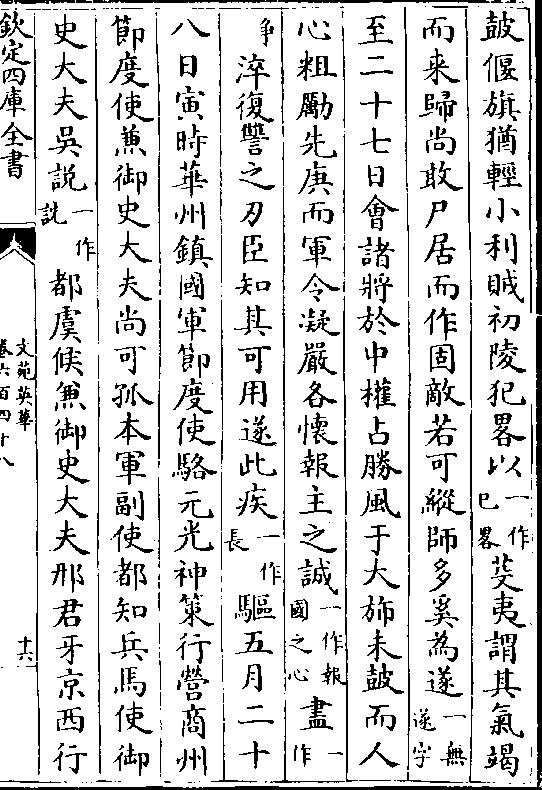 鼓偃旗猶輕小利賊初陵犯畧以一作已畧芟夷謂其氣竭
而来歸尚敢尸居而作固敵若可縱師多奚為遂一無遂字
至二十七日會諸將於中權占勝風于大斾未鼓而人
心粗勵先庚而軍令凝嚴各懷報主之誠一作報國之心盡一作
争淬復讐之刃臣知其可用遂此疾一作長驅五月二十
八日寅時華州鎮國軍節度使駱元光神策行營商州
節度使兼御史大夫尚可孤本軍副使都知兵馬使御
史大夫吳説一作訛都虞候兼御史大夫邢君牙京西行
欽定四庫全書
文苑英華
卷六百四十八
十六